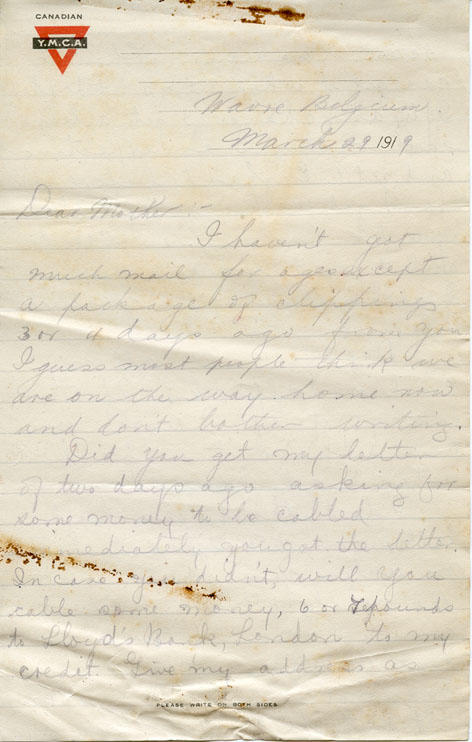 CANADIAN
Y.M.C.A.
Wavre Belgium.
March 29 1919
Dear Mother:-
I haven't got
much mail for ages except
a package of clippings
3 or 4 days ago from you
I guess most people think we
are on the way home now
and don't bother writing.
Did you get my letter
of two days ago asking for
some money to be cabled
immediately you got the letter.
In case you didn't, will you
cable some money, 6 or 7 pounds
to Lloyd's Bank, London to my
credit. Give my address as
PLEASE WRITE ON BOTH SIDES